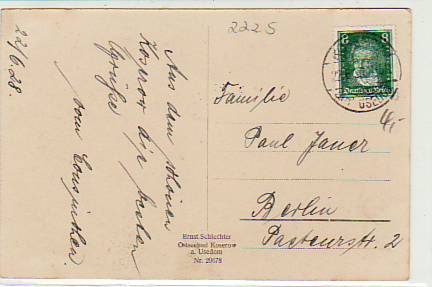 2225
22/6.28.
Aus dem schönen
Koserow die besten
Grüße
vom
Familie
Paul Jauer
Berlin
Pasteurstr. 2
Ernst Schlechter
Ostseebad Koserow
a. Usedom
Nr. 20678
8 8
Deutsches Reich
USEDOM
4,-